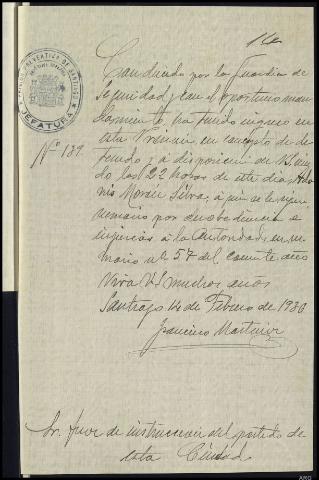 PRISION PREVENTIVA DE SANTIAGO
JEFATURA
Nº 139
Conducido por la Guardia de
Seguridad y con el oportuno man
damiento, ha tenido ingreso en
esta Prisión, en concepto de de-
tenido y a disposición de V. sien
do las 22 horas de este dia,
Silva, a quien se le sigue
sumario por desobediencia e
injurias a la Autoridad, en su-
mario nº 57 del corriente año
Viva V. muchos años
Santiago 14 de Febrero de 1936
Francisco Martinez
Sr. Juez de instrucción del partido de
esta Ciudad